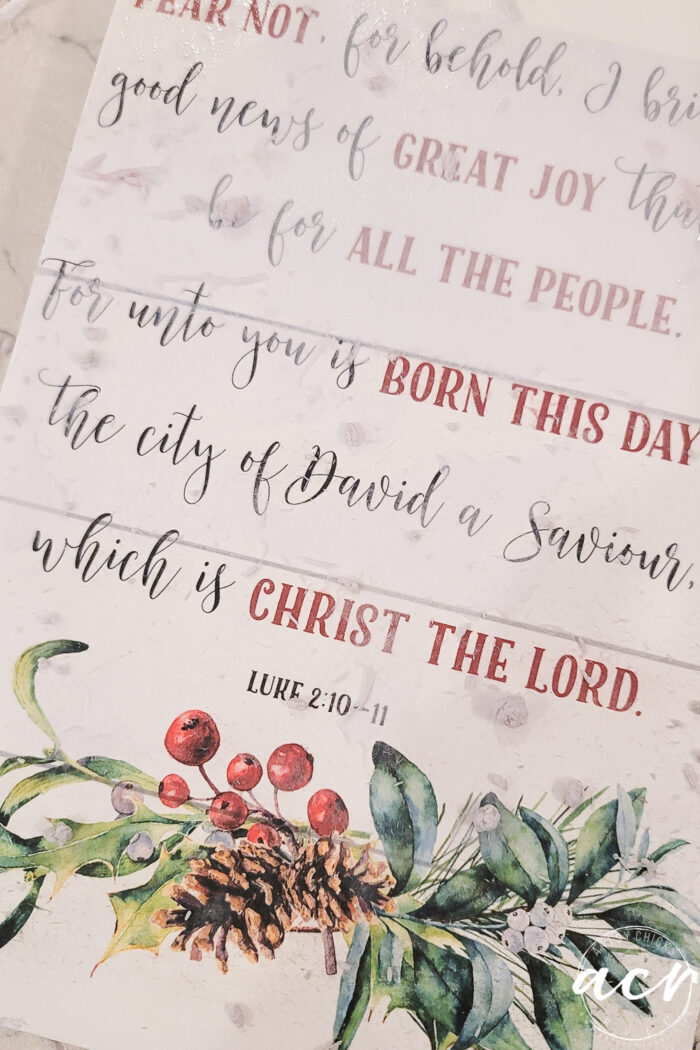 FEAR NOT, for behold, I
good news of GREAT JOY
be for ALL THE PEOPLE.
For unto you is BORN THIS DAY
the city of David a Saviour,
which is CHRIST THE LORD.
LUKE 2:10-11
acr